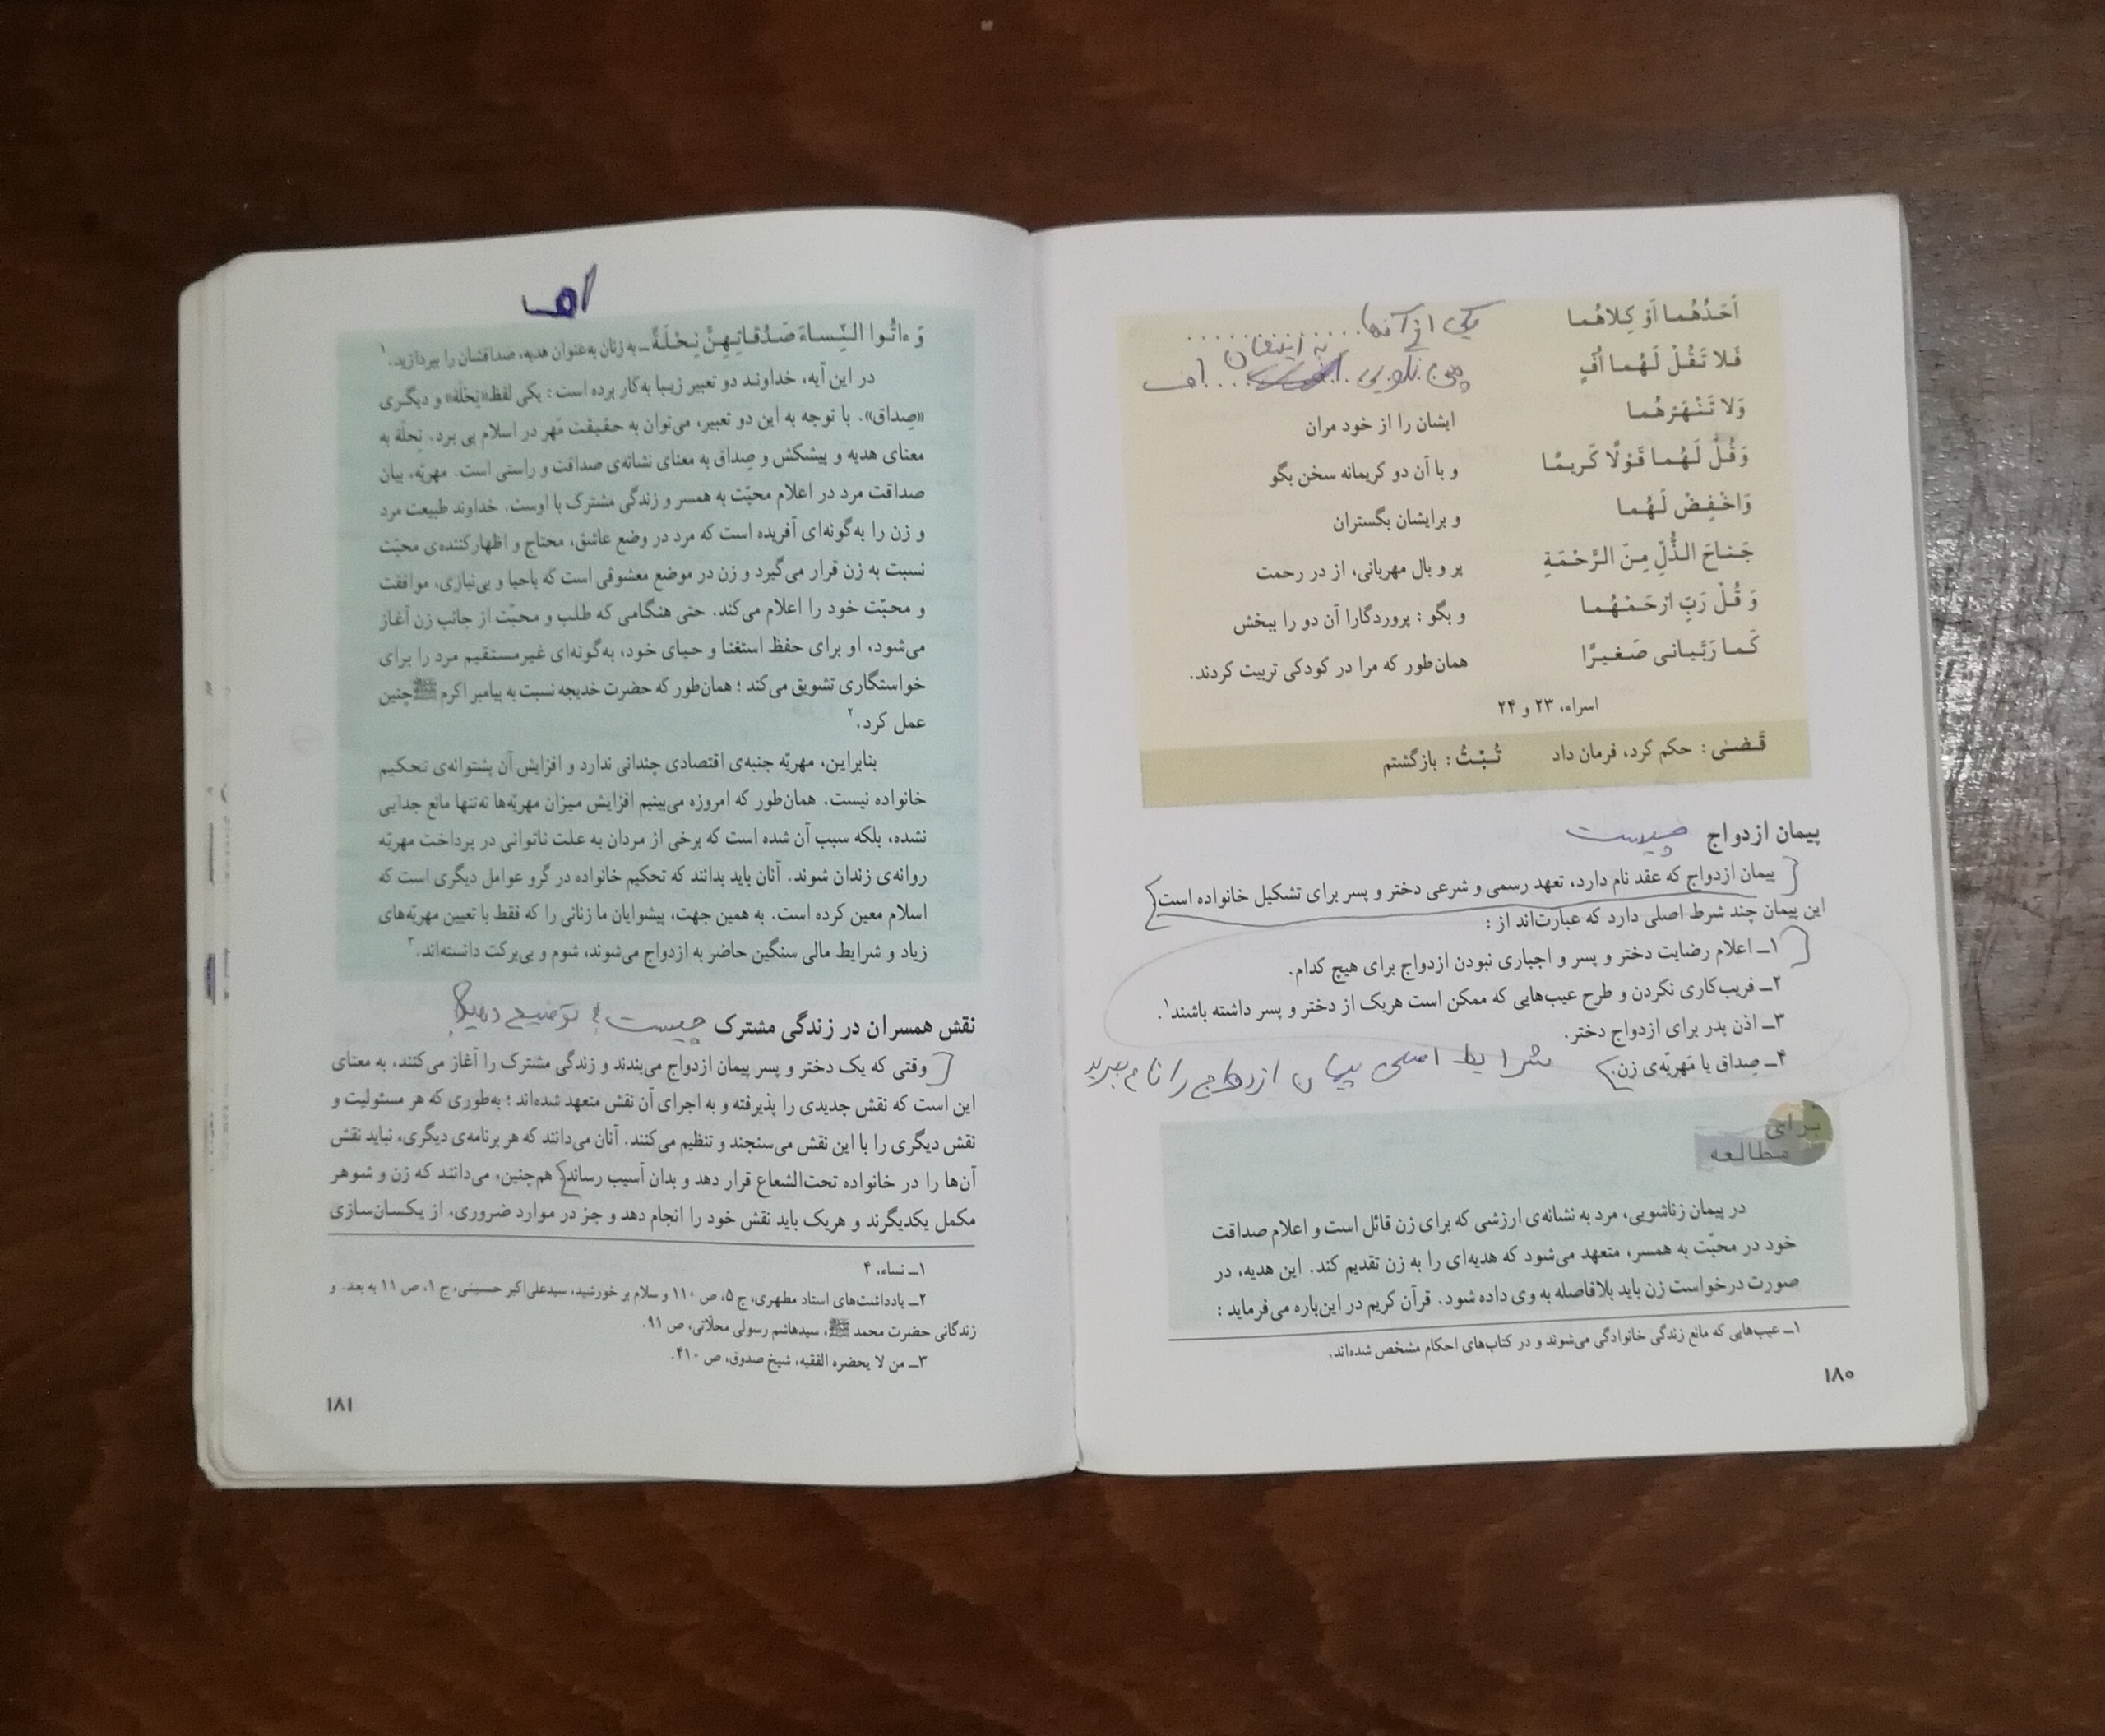 اَحَدُهُما اَوْ کِلاهُما یکی از آنها
فَلا تَقُلْ لَهُما اُفٍّ پس نگویی به ایشان اف
وَلا تَنْهَرْهُما ایشان را از خود مران
وَقُلْ لَهُما قَوْلًا کَریمًا و با آن دو کریمانه سخن بگو
وَاخْفِضْ لَهُما و برایشان بگستران
جَناحَ الذُّلِّ مِنَ الرَّحْمَةِ پر و بال مهربانی، از در رحمت
وَ قُلْ رَبِّ ارْحَمْهُما و بگو : پروردگارا آن دو را ببخش
کَما رَبَّیانی صَغیرًا همان‌طور که مرا در کودکی تربیت کردند.
اسراء، ۲۳ و ۲۴
قَضیٰ : حکم کرد، فرمان داد تُبْتُ : بازگشتم
پیمان ازدواج چیست
پیمان ازدواج که عقد نام دارد، تعهد رسمی و شرعی دختر و پسر برای تشکیل خانواده است
این پیمان چند شرط اصلی دارد که عبارت‌اند از :
۱ــ اعلام رضایت دختر و پسر و اجباری نبودن ازدواج برای هیچ کدام.
۲ــ فریب‌کاری نکردن و طرح عیب‌هایی که ممکن است هریک از دختر و پسر داشته باشند۱.
۳ــ اذن پدر برای ازدواج دختر.
۴ــ صِداق یا مَهریّه‌ی زن. شرایط اصلی پیمان ازدواج را نام ببرید
برای
مطالعه
در پیمان زناشویی، مرد به نشانه‌ی ارزشی که برای زن قائل است و اعلام صداقت
خود در محبّت به همسر، متعهد می‌شود که هدیه‌ای را به زن تقدیم کند. این هدیه، در
صورت درخواست زن باید بلافاصله به وی داده شود. قرآن کریم در این‌باره می‌فرماید :
۱ــ عیب‌هایی که مانع زندگی خانوادگی می‌شوند و در کتاب‌های احکام مشخص شده‌اند.
۱۸۰
اف
وَ ءاتُوا النِّساءَ صَدُقاتِهِنَّ نِحْلَةً ــ به زنان به‌عنوان هدیه، صداقشان را بپردازید.۱
در این آیه، خداوند دو تعبیر زیبا به‌کار برده است : یکی لفظ «نِحْلَة» و دیگری
«صِداق». با توجه به این دو تعبیر، می‌توان به حقیقت مَهر در اسلام پی برد. نِحلَة به
معنای هدیه و پیشکش و صِداق به معنای نشانه‌ی صداقت و راستی است. مهریّه، بیان
صداقت مرد در اعلام محبّت به همسر و زندگی مشترک با اوست. خداوند طبیعت مرد
و زن را به‌گونه‌ای آفریده است که مرد در وضع عاشق، محتاج و اظهارکننده‌ی محبّت
نسبت به زن قرار می‌گیرد و زن در موضع معشوقی است که باحیا و بی‌نیازی، موافقت
و محبّت خود را اعلام می‌کند. حتی هنگامی که طلب و محبّت از جانب زن آغاز
می‌شود، او برای حفظ استغنا و حیای خود، به‌گونه‌ای غیرمستقیم مرد را برای
خواستگاری تشویق می‌کند ؛ همان‌طور که حضرت خدیجه نسبت به پیامبر اکرم ﷺ چنین
عمل کرد.۲
بنابراین، مهریّه جنبه‌ی اقتصادی چندانی ندارد و افزایش آن پشتوانه‌ی تحکیم
خانواده نیست. همان‌طور که امروزه می‌بینیم افزایش میزان مهریّه‌ها نه‌تنها مانع جدایی
نشده، بلکه سبب آن شده است که برخی از مردان به علت ناتوانی در پرداخت مهریّه
روانه‌ی زندان شوند. آنان باید بدانند که تحکیم خانواده در گرو عوامل دیگری است که
اسلام معین کرده است. به همین جهت، پیشوایان ما زنانی را که فقط با تعیین مهریّه‌های
زیاد و شرایط مالی سنگین حاضر به ازدواج می‌شوند، شوم و بی‌برکت دانسته‌اند.۳
نقش همسران در زندگی مشترک چیست؟ توضیح دهید؟
وقتی که یک دختر و پسر پیمان ازدواج می‌بندند و زندگی مشترک را آغاز می‌کنند، به معنای
این است که نقش جدیدی را پذیرفته و به اجرای آن نقش متعهد شده‌اند ؛ به‌طوری که هر مسئولیت و
نقش دیگری را با این نقش می‌سنجند و تنظیم می‌کنند. آنان می‌دانند که هر برنامه‌ی دیگری، نباید نقش
آن‌ها را در خانواده تحت‌الشعاع قرار دهد و بدان آسیب رساند. هم‌چنین، می‌دانند که زن و شوهر
مکمل یکدیگرند و هریک باید نقش خود را انجام دهد و جز در موارد ضروری، از یکسان‌سازی
۱ــ نساء، ۴
۲ــ یادداشت‌های استاد مطهری، ج ۵، ص ۱۱۰ و سلام بر خورشید، سیدعلی‌اکبر حسینی، ج ۱، ص ۱۱ به بعد. و
زندگانی حضرت محمد ﷺ، سیدهاشم رسولی محلّاتی، ص ۹۱.
۳ــ من لا یحضره الفقیه، شیخ صدوق، ص ۴۱۰.
۱۸۱